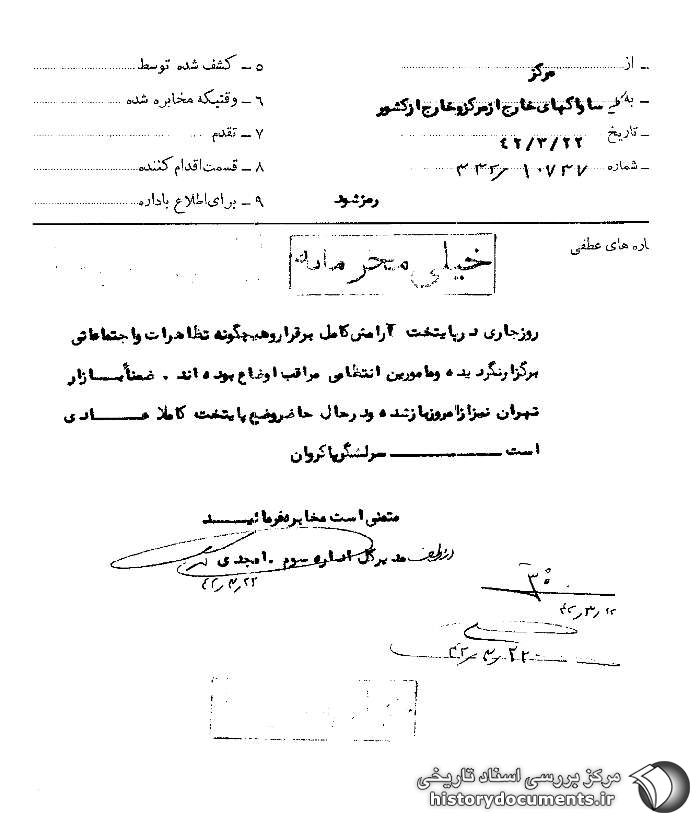 از مرکز
به کلیه ساواکهای خارج از مرکز و خارج از کشور
تاریخ ۴۲/۳/۲۲
شماره ۱۰۷۳۷/۳۳۲
۵ – کشف شده توسط
۶ – وقتیکه مخابره شده
۷ – تقدم
۸ – قسمت اقدام کننده
۹ – برای اطلاع باداره
رمز شود
اره های عطفی
خیلی محرمانه
روز جاری در پایتخت آرامش کامل برقرار و هیچگونه تظاهرات و اجتماعاتی
برگزار نگردیده و مامورین انتظامی مراقب اوضاع بوده اند . ضمناً بازار
تهران نیز از امروز باز شده و در حال حاضر وضع پایتخت کاملا عادی
است سرلشگر پاکروان
متمنی است مخابره فرمائید
از طرف مدیر کل اداره سوم . امجدی
۴۲/۳/۲۲
۴۲/۳/۲۲
۴۲/۳/۲۲
مرکز بررسی اسناد تاریخی
historydocuments.ir